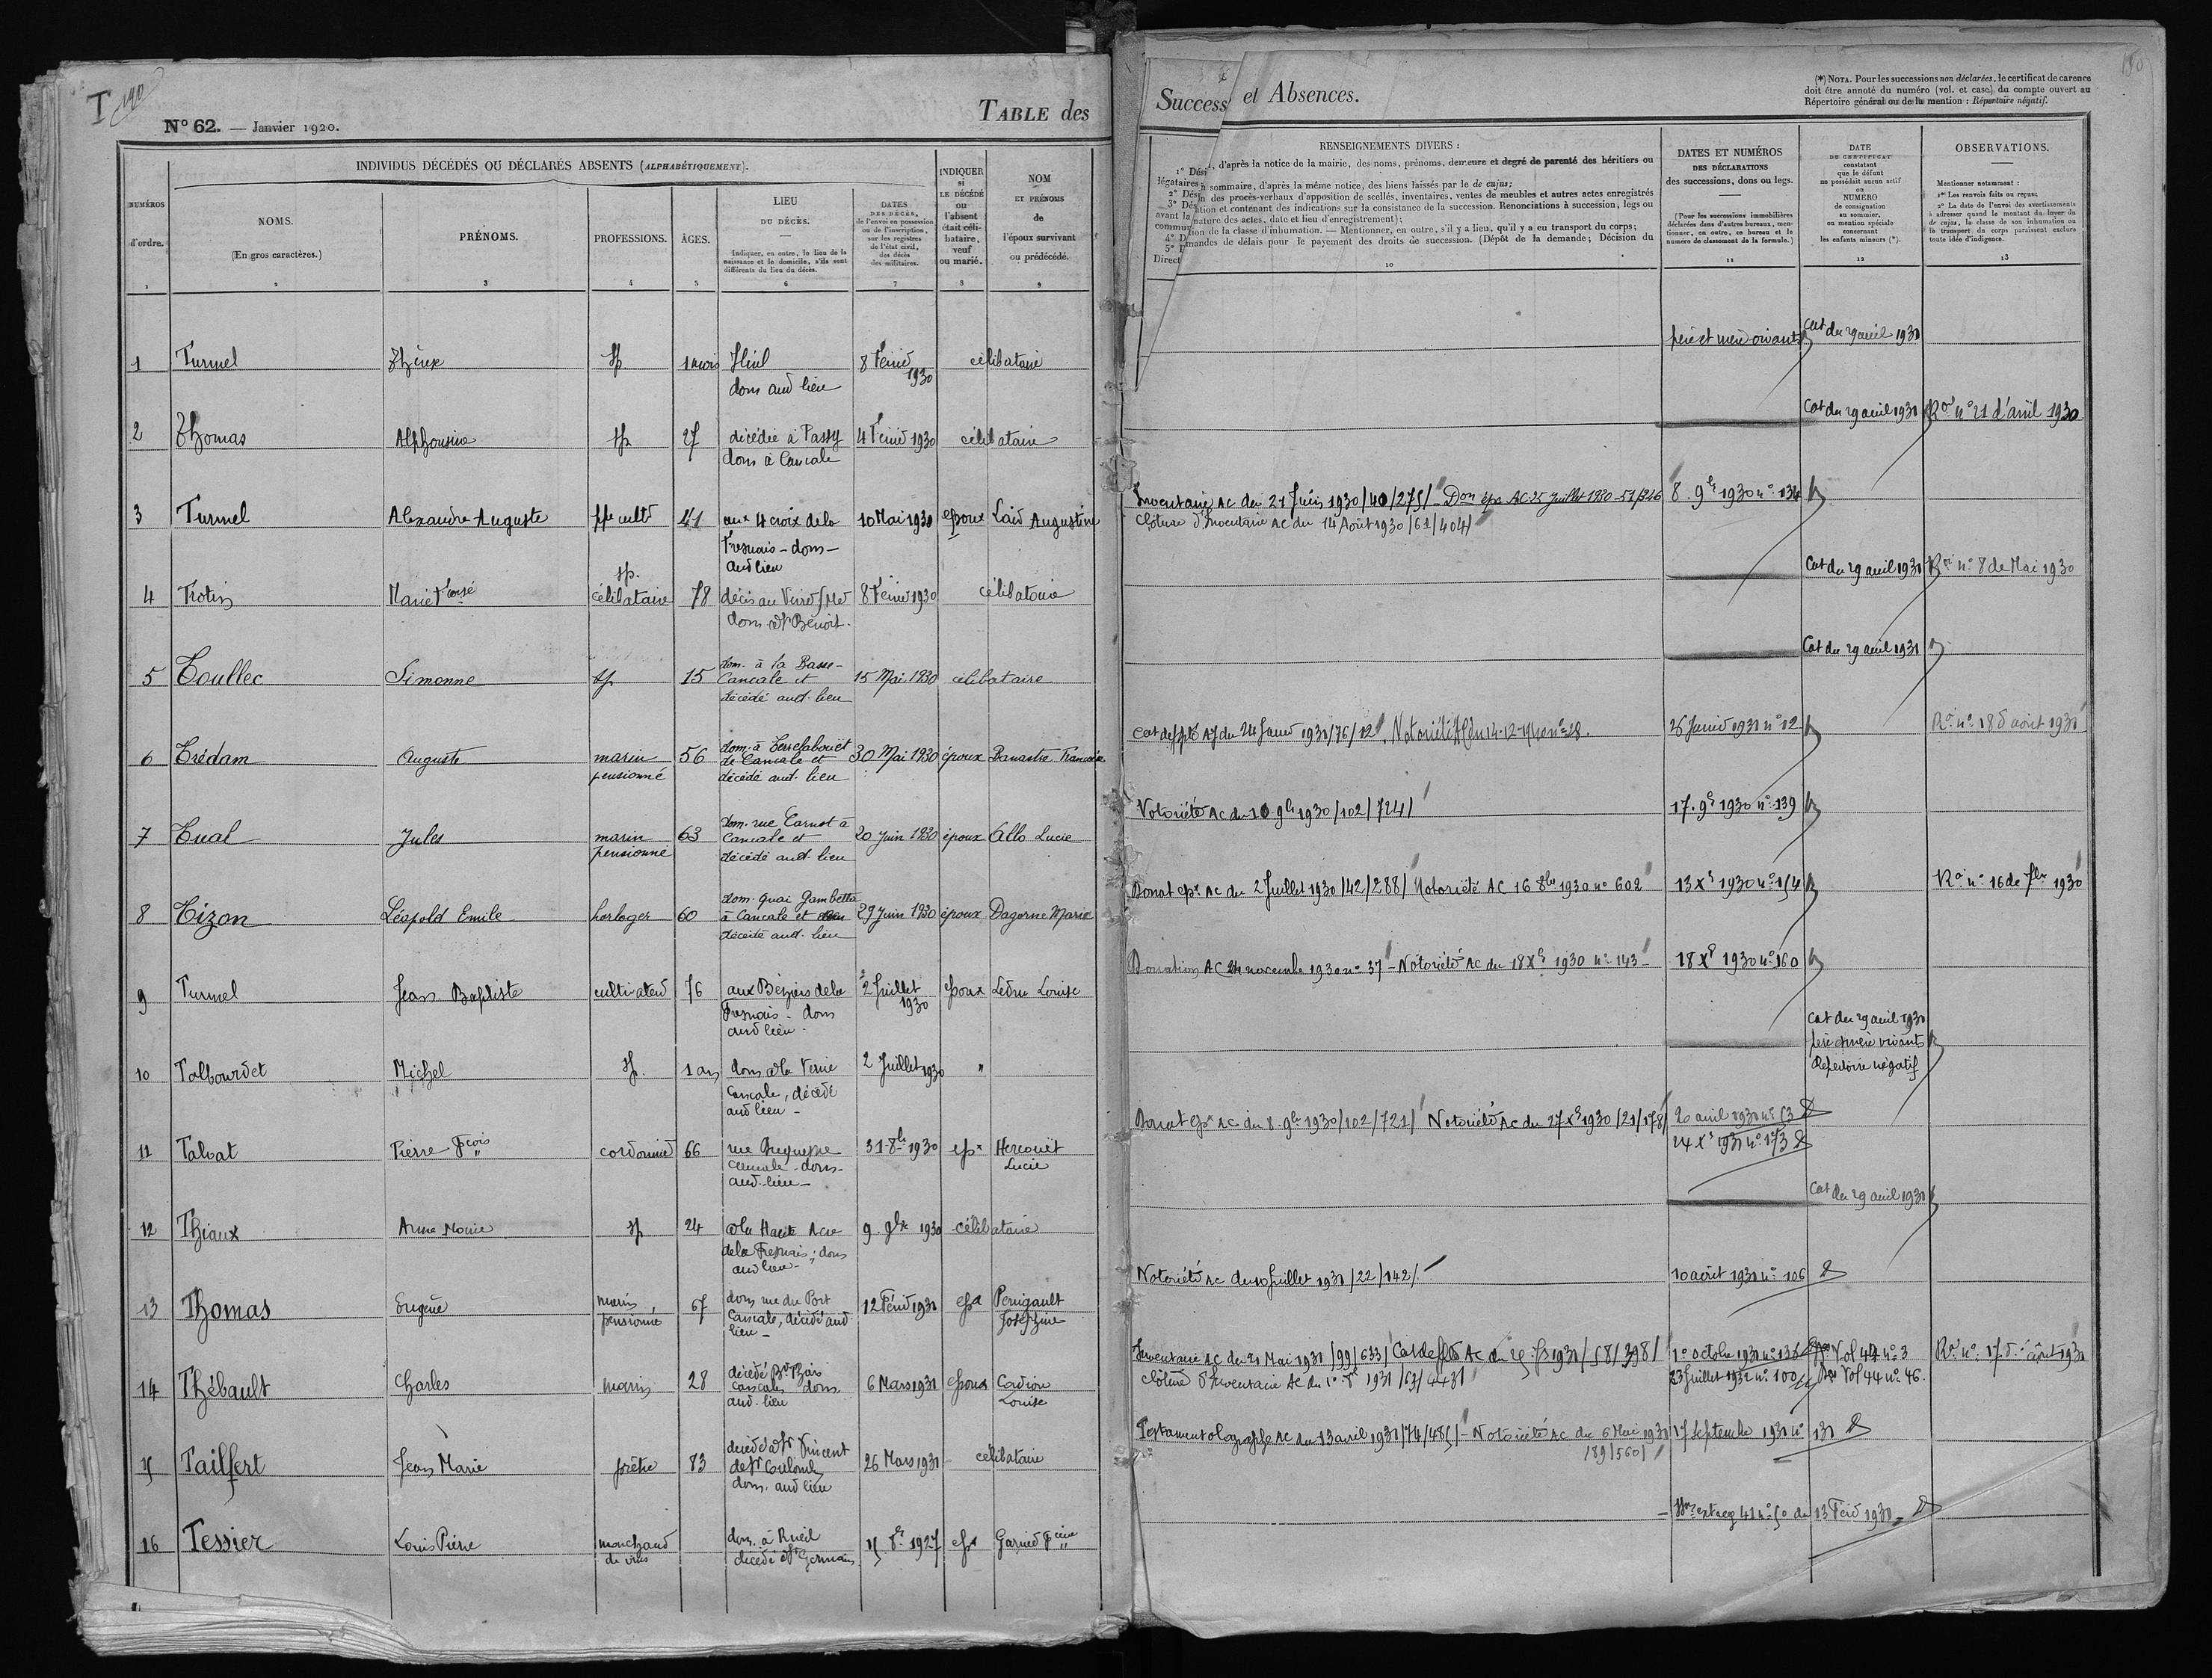 T 190
N° 62. — Janvier 1920.
TABLE des
INDIVIDUS DÉCÉDÉS OU DÉCLARÉS ABSENTS (ALPHABÉTIQUEMENT).
NUMÉROS
d'ordre.
1
NOMS.
(En gros caractères.)
2
PRÉNOMS.
3
PROFESSIONS.
4
ÂGES.
5
LIEU
DU DÉCÈS.
Indiquer, en outre, le lieu de la
naissance et le domicile, s'ils sont
différents du lieu du décès.
6
DATES
DES DÉCÈS,
de l'envoi en possession
ou de l'inscription,
sur les registres
de l'état civil,
des décès
des militaires.
7
INDIQUER
si
LE DÉCÉDÉ
ou
l'absent
était céli-
bataire,
veuf
ou marié.
8
NOM
ET PRÉNOMS
de
l'époux survivant
ou prédécédé.
9
1 Turmel sp 1 mois 8 1930 célibataire
dom aud lieu
2 Thomas Alphonsine sp 27 décédée à Passy 4 1930 célibataire
dom à Cancale
3 Turmel Alexandre Auguste 41 aux 4 croix de la 10 Mai 1930 époux Augustine
Fresnais - dom -
aud lieu
sp.
4 Trotin célibataire 78 8 1930 célibataire
dom St Benoit.
5 Toullec Simonne sp 15 dom. à la Basse- 15 Mai 1930 célibataire
Cancale et
décédé aud. lieu
6 Trédam Auguste marin 56 dom. à Terrelabouet 30 Mai 1930 époux Banastre
pensionné de Cancale et
décédé aud. lieu
7 Tual Jules marin 63 dom. rue Carnot à 20 juin 1930 époux Allo Lucie
pensionné Cancale et
décédé aud. lieu
8 Tizon Léopold Emile horloger 60 dom. quai Gambetta 29 juin 1930 époux Dagorne Marie
à Cancale et
décédé aud. lieu
9 Turmel Jean Baptiste 76 2 Juillet époux Ledru Louise
Fresnais - dom 1930
aud lieu -
10 Talbourdet Michel sp. 1 an 2 Juillet 1930 "
Cancale, décédé
aud lieu -
11 Talvat Pierre Fçois 66 rue 31 8bre 1930 epx Hercouët
Cancale - dom - Lucie
aud. lieu -
12 Thiaux Anne Marie sp 24 à la Haute 9. 9bre 1930 célibataire
de la Fresnais ; dom
aud lieu -
13 Thomas Eugène marin 67 dom rue du Port 12 1931 epx Perrigault
pensionné Cancale, décédé aud Joséphine
lieu -
14 Thébault Charles marin 28 décédé 6 Mars 1931 époux
Cancale dom Louise
aud. lieu
15 Tailfert Jean Marie prêtre 83 décédé à St Vincent 26 Mars 1931 célibataire
de St Coulomb
dom. aud lieu
16 Tessier Louis Pierre marchand dom. à Rueil 1927 epx
de vins décédé St Germain
Success et Absences.
(*) NOTA. Pour les successions non déclarées, le certificat de carence
doit être annoté du numéro (vol. et case) du compte ouvert au
Répertoire général ou de la mention : Répertoire négatif.
RENSEIGNEMENTS DIVERS :
1° Dési , d'après la notice de la mairie, des noms, prénoms, demeure et degré de parenté des héritiers ou
légataires
2° Dési n sommaire, d'après la même notice, des biens laissés par le de cujus;
3° Dés n des procès-verbaux d'apposition de scellés, inventaires, ventes de meubles et autres actes enregistrés
avant la ation et contenant des indications sur la consistance de la succession. Renonciations à succession, legs ou
commun nature des actes, date et lieu d'enregistrement);
4° D tion de la classe d'inhumation. — Mentionner, en outre, s'il y a lieu, qu'il y a eu transport du corps;
5° D mandes de délais pour le payement des droits de succession. (Dépôt de la demande; Décision du
Direct
10
DATES ET NUMÉROS
DES DÉCLARATIONS
des successions, dons ou legs.
(Pour les successions immobilières
déclarées dans d'autres bureaux, men-
tionner, en outre, ce bureau et le
numéro de classement de la formule.)
11
DATE
DU CERTIFICAT
constatant
que le défunt
ne possédait aucun actif
ou
NUMÉRO
de consignation
au sommier,
ou mention spéciale
concernant
les enfants mineurs (*).
12
OBSERVATIONS.
Mentionner notamment :
1° Les renvois faits ou reçus;
2° La date de l'envoi des avertissements
à adresser quand le montant du loyer du
de cujus, la classe de son inhumation ou
le transport du corps paraissent exclure
toute idée d'indigence.
13
père et mère vivants Cat du 29 avril 1931
Cat du 29 avril 1931 Roi n° 21 d'avril 1930
Inventaire AC du 21 Juin 1930/40/275/ - Don épx AC 25 Juillet 1930-51/346 8. 9bre 1930 n° 134
Clôture d'Inventaire AC du 14 Août 1930/61/404/
Cat du 29 avril 1931 Roi n° 8 de Mai 1930
Cat du 29 avril 1931
Cat de ppté AC du 24 Janv 1931/76/12 Notoriété 26 1931 n° 12 Roi n° 18 d'août 1931
Notoriété AC du 10 9bre 1930/102/724/ 17. 9bre 1930 n° 139
Donat epx AC du 2 Juillet 1930/42/288/ Notoriété AC 16 8bre 1930 n° 602 13 Xbre 1930 n° 154 Roi n° 16 de 7bre 1930
Donation AC 24 novembre 1930 n° 37 - Notoriété AC du 18 Xbre 1930 n° 143 - 18 Xbre 1930 n° 160
Cat du 29 avril 1931
père et mère vivants
Répertoire négatif
Donat epx AC du 8. 9bre 1930/102/721/ Notoriété AC du 27 Xbre 1930/21/178/ 20 avril 1931 n° 53
24 Xbre 1931 n° 173
Cat du 29 avril 1931
Notoriété AC du 10 Juillet 1931/22/142/. 10 août 1931 n° 106
Inventaire AC du 21 Mai 1931/99/633/ Cat de ppté AC 1931/58/398/ 1er octobre 1931 n° 136 Vol 44 n° 3 Roi n° 17 d'août 1931
Clôture d'Inventaire AC du 1931/63/443/ 23 Juillet 1932 n° 100 Vol 44 n° 46.
Testament olographe AC du 13 avril 1931/74/485/ - Notoriété AC du 6 Mai 1931 17 septembre 1931 n° 131
/89/560/
13 1930